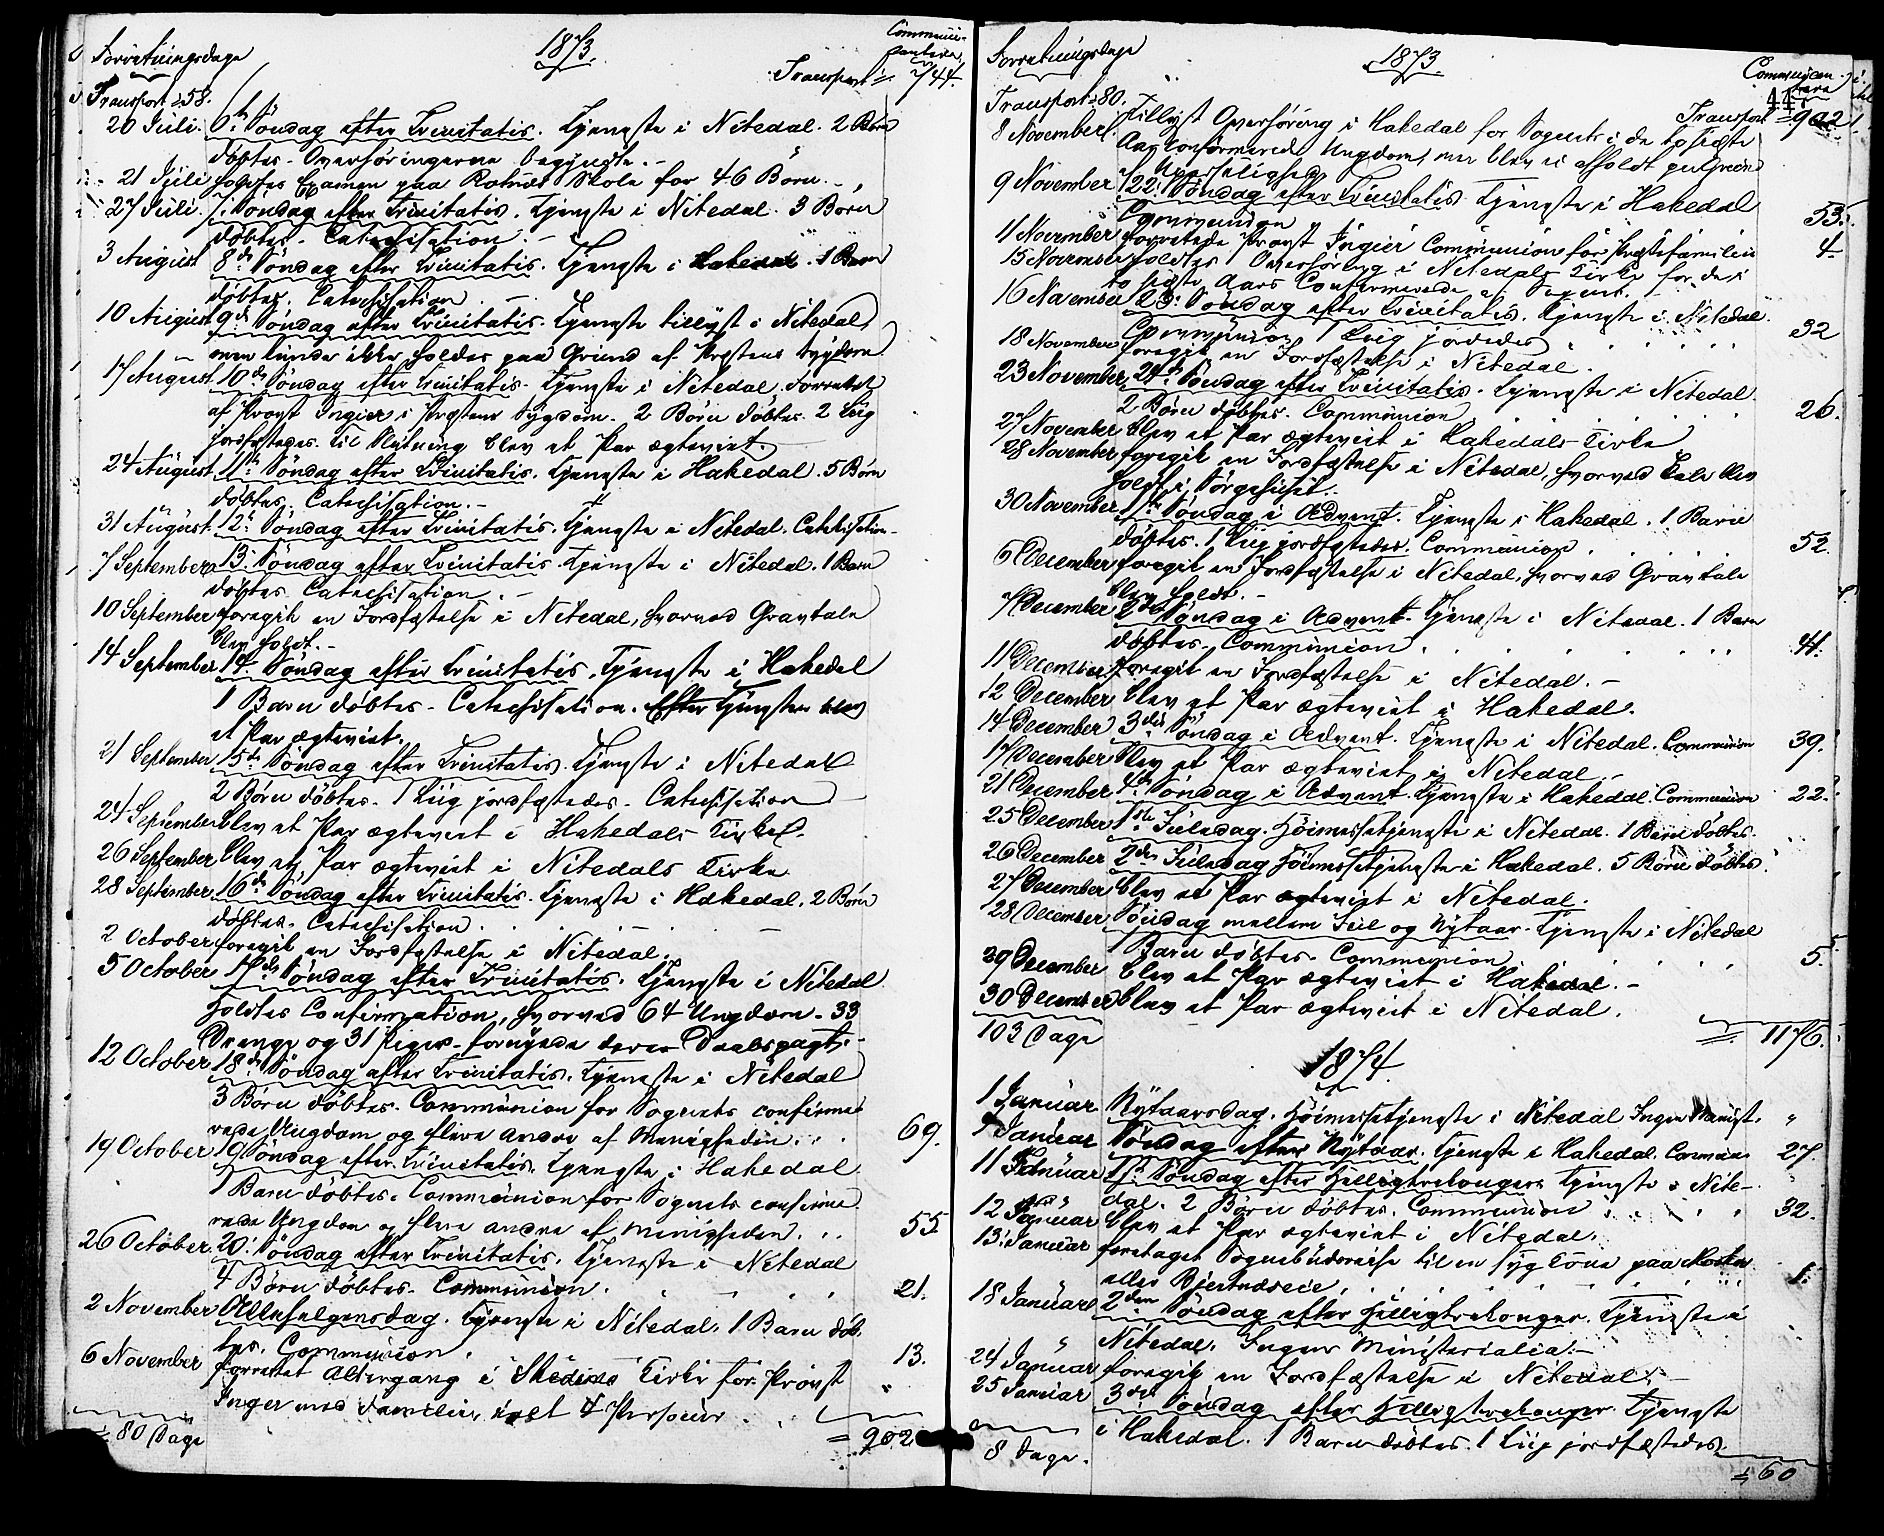 Forretningsdage 1873. Communicantere
Transport = 58. Transport = 744.
20 Juli. 6te Söndag efter Trinitatis. Tjeneste i Nitedal. 2 Börn
döbtes. Overhöringerne begyndte.
21 Juli holdtes Examen paa Rotnes Skole for 46 Börn.
27 Juli. 7: Söndag efter Trinitatis. Tjeneste i Nitedal. 3 Börn
döbtes. Catechisation.
3 August 8de Söndag efter Trinitatis. Tjeneste i Hakedal. 1 Barn
döbtes. Catechisation.
10 August 9de Söndag efter Trinitatis. Tjeneste tillyst i Nitedal,
men kunde ikke holdes paa Grund af Præstens Sygdom.
17 August 10de Söndag efter Trinitatis. Tjeneste i Nitedal forrettet
af Provst Ingier i Præstens Sygdom. 2 Börn döbtes. 2 Liig
jordfæstedes. Til Slutning blev et Par ægteviet.
24 August 11te Söndag efter Trinitatis. Tjeneste i Hakedal. 5 Börn
döbtes. Catechisation.
31 August 12te Söndag efter Trinitatis. Tjeneste i Nitedal. Catechisation.
7 September 13: Söndag efter Trinitatis. Tjeneste i Nitedal. 1 Barn
döbtes. Catechisation.
10 September foregik en Jordfæstelse i Nitedal, hvorved Gravtale
blev holdt.
14 September 14. Söndag efter Trinitatis. Tjeneste i Hakedal
1 Barn döbtes. Catechisation. Efter Tjenesten blev
et Par ægteviet.
21 September 15de Söndag efter Trinitatis. Tjeneste i Nitedal
2 Börn döbtes. 1 Liig jordfæstedes. Catechisation
24 September blev et Par ægteviet i Hakedals Kirke.
26 September blev et Par ægteviet i Nitedals Kirke
28 September 16de Söndag efter Trinitatis. Tjeneste i Hakedal. 2 Börn
döbtes. Catechisation.
2 October foregik en Jordfæstelse i Nitedal.
5 October 17de Söndag efter Trinitatis. Tjeneste i Nitedal
holdtes Confirmation, hvorved 64 Ungdom - 33
Drenge og 31 Piger - fornyede deres Daabspagt.
12 October 18de Söndag efter Trinitatis. Tjeneste i Nitedal
3 Börn döbtes. Communion for Sognets confirme-
rede Ungdom og flere andre af Menigheden. 69.
19 October 19 Söndag efter Trinitatis. Tjeneste i Hakedal.
1 Barn döbtes. Communion for Sognets confirme
rede Ungdom og flere andre af Menigheden. 55.
26 October 20: Söndag efter Trinitatis. Tjeneste i Nitedal
4 Börn döbtes. Communion. 21.
2 November Allehelgensdag. Tjeneste i Nitedal. 1 Barn döb-
tes. Communion. 13.
6 November forrettet Altergang i Skedsmo Kirke for Provst "
Ingier med Familie, i alt 4 Personer.
= 80 Dage = 902
Forretningsdage 1873. Communicantere
44
Transport = 80. Transport = 902
8 November. Tillyst Overhöring i Hakedal for Sognets i de to sidste
Aar konfirmerede Ungdom, men blev ei afholdt paa Grund
af Upasselighed
9 November 22: Söndag efter Trinitatis Tjeneste i Hakedal
Communion 53.
11 November forrettede Provst Ingier Communion for Præstefamilien 4
15 November holdtes Overhöring i Nitedals Kirke for de i
to sidste Aars Confirmerede af Sognet.
16 November 23: Söndag efter Trinitatis. Tjeneste i Nitedal.
Communion. 1 Liig jordedes 32
18 November foregik en Jordfæstelse i Nitedal.
23 November 24de Söndag efter Trinitatis. Tjeneste i Nitedal.
2 Börn döbtes. Communion 26.
27 November blev et Par ægteviet i Hakedals Kirke
28 November foregik en Jordfæstelse i Nitedal, hvorved Tale blev
holdt i Sörgehuset.
30 November 1ste Söndag i Advent. Tjeneste i Hakedal. 1 Barn
döbtes. 1 Liig jordfæstedes. Communion. 52.
6 December foregik en Jordfæstelse i Nitedal, hvorved Gravtale
blev holdt.
7 December 2den Söndag i Advent. Tjeneste i Nitedal. 1 Barn
döbtes. Communion 41.
11 December foregik en Jordfæstelse i Nitedal.
12 December blev et Par ægteviet i Hakedal.
14 December 3die Söndag i Advent. Tjeneste i Nitedal. Communion 39.
17 December blev et Par ægteviet i Nitedal.
21 December 4de Söndag i Advent. Tjeneste i Hakedal. Communion 22.
25 December 1ste Juledag. Höimessetjeneste i Nitedal. 1 Barn döbtes.
26 December 2den Juledag Höimessetjeneste i Hakedal. 5 Börn döbtes.
27 December blev et Par ægteviet i Nitedal.
28 December Söndag mellem Juul og Nytaar. Tjeneste i Nitedal
1 Barn döbtes. Communion 5.
29 December blev et Par ægteviet i Hakedal.
30 December blev et Par ægteviet i Nitedal.
103 Dage = 1176.
1874.
1 Januar Nytaarsdag. Höimessetjeneste i Nitedal Ingen Minist. "
4 Januar Söndag efter Nytaar. Tjeneste i Hakedal. Commun. 27.
11 Januar 1ste Söndag efter Helligtrekonger. Tjeneste i Nite-
dal. 2 Börn döbtes. Communion 32.
12 Januar blev et Par ægteviet i Nitedal.
13. Januar foretaget Sognebudsreise til en syg Kone paa
eller Bjertnæseie. 1.
18 Januar 2den Söndag efter Helligtrekonger. Tjeneste i
" Nitedal. Ingen Ministerialia.
24 Januar foregik en Jordfæstelse i Nitedal.
25 Januar 3die Söndag efter Helligtrekonger. Tjeneste
i Hakedal. 1 Barn döbtes. 1 Liig jordfæstedes.
8 Dage. = 60